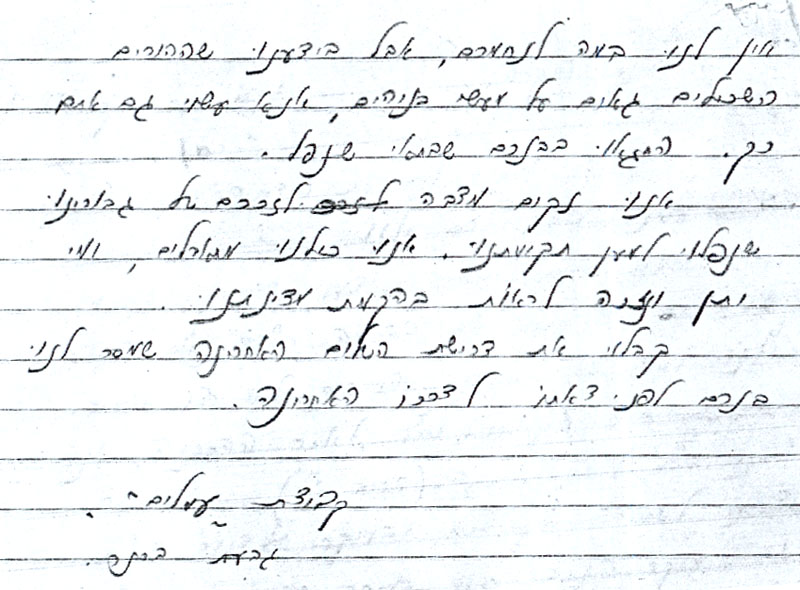 אין לנו במה לנחמכם, אבל בידענו שההורים
השכולים גאים על מעשי בניהם, אנא עשו גם אתם
כך. התגאו בבנכם שבתאי שנפל.
אנו נקים מצבה לזכרם של גבורינו
שנפלו למען תקומתנו. אנו כולנו מתפללים, ומי
יתן ונזכה לראות בהקמת מדינתנו.
קבלו את דרישת השלום האחרונה שמסר לנו
בנכם לפני צאתו לדרכו האחרונה.
קבוצת "עמלים".
גבעת ברנר.